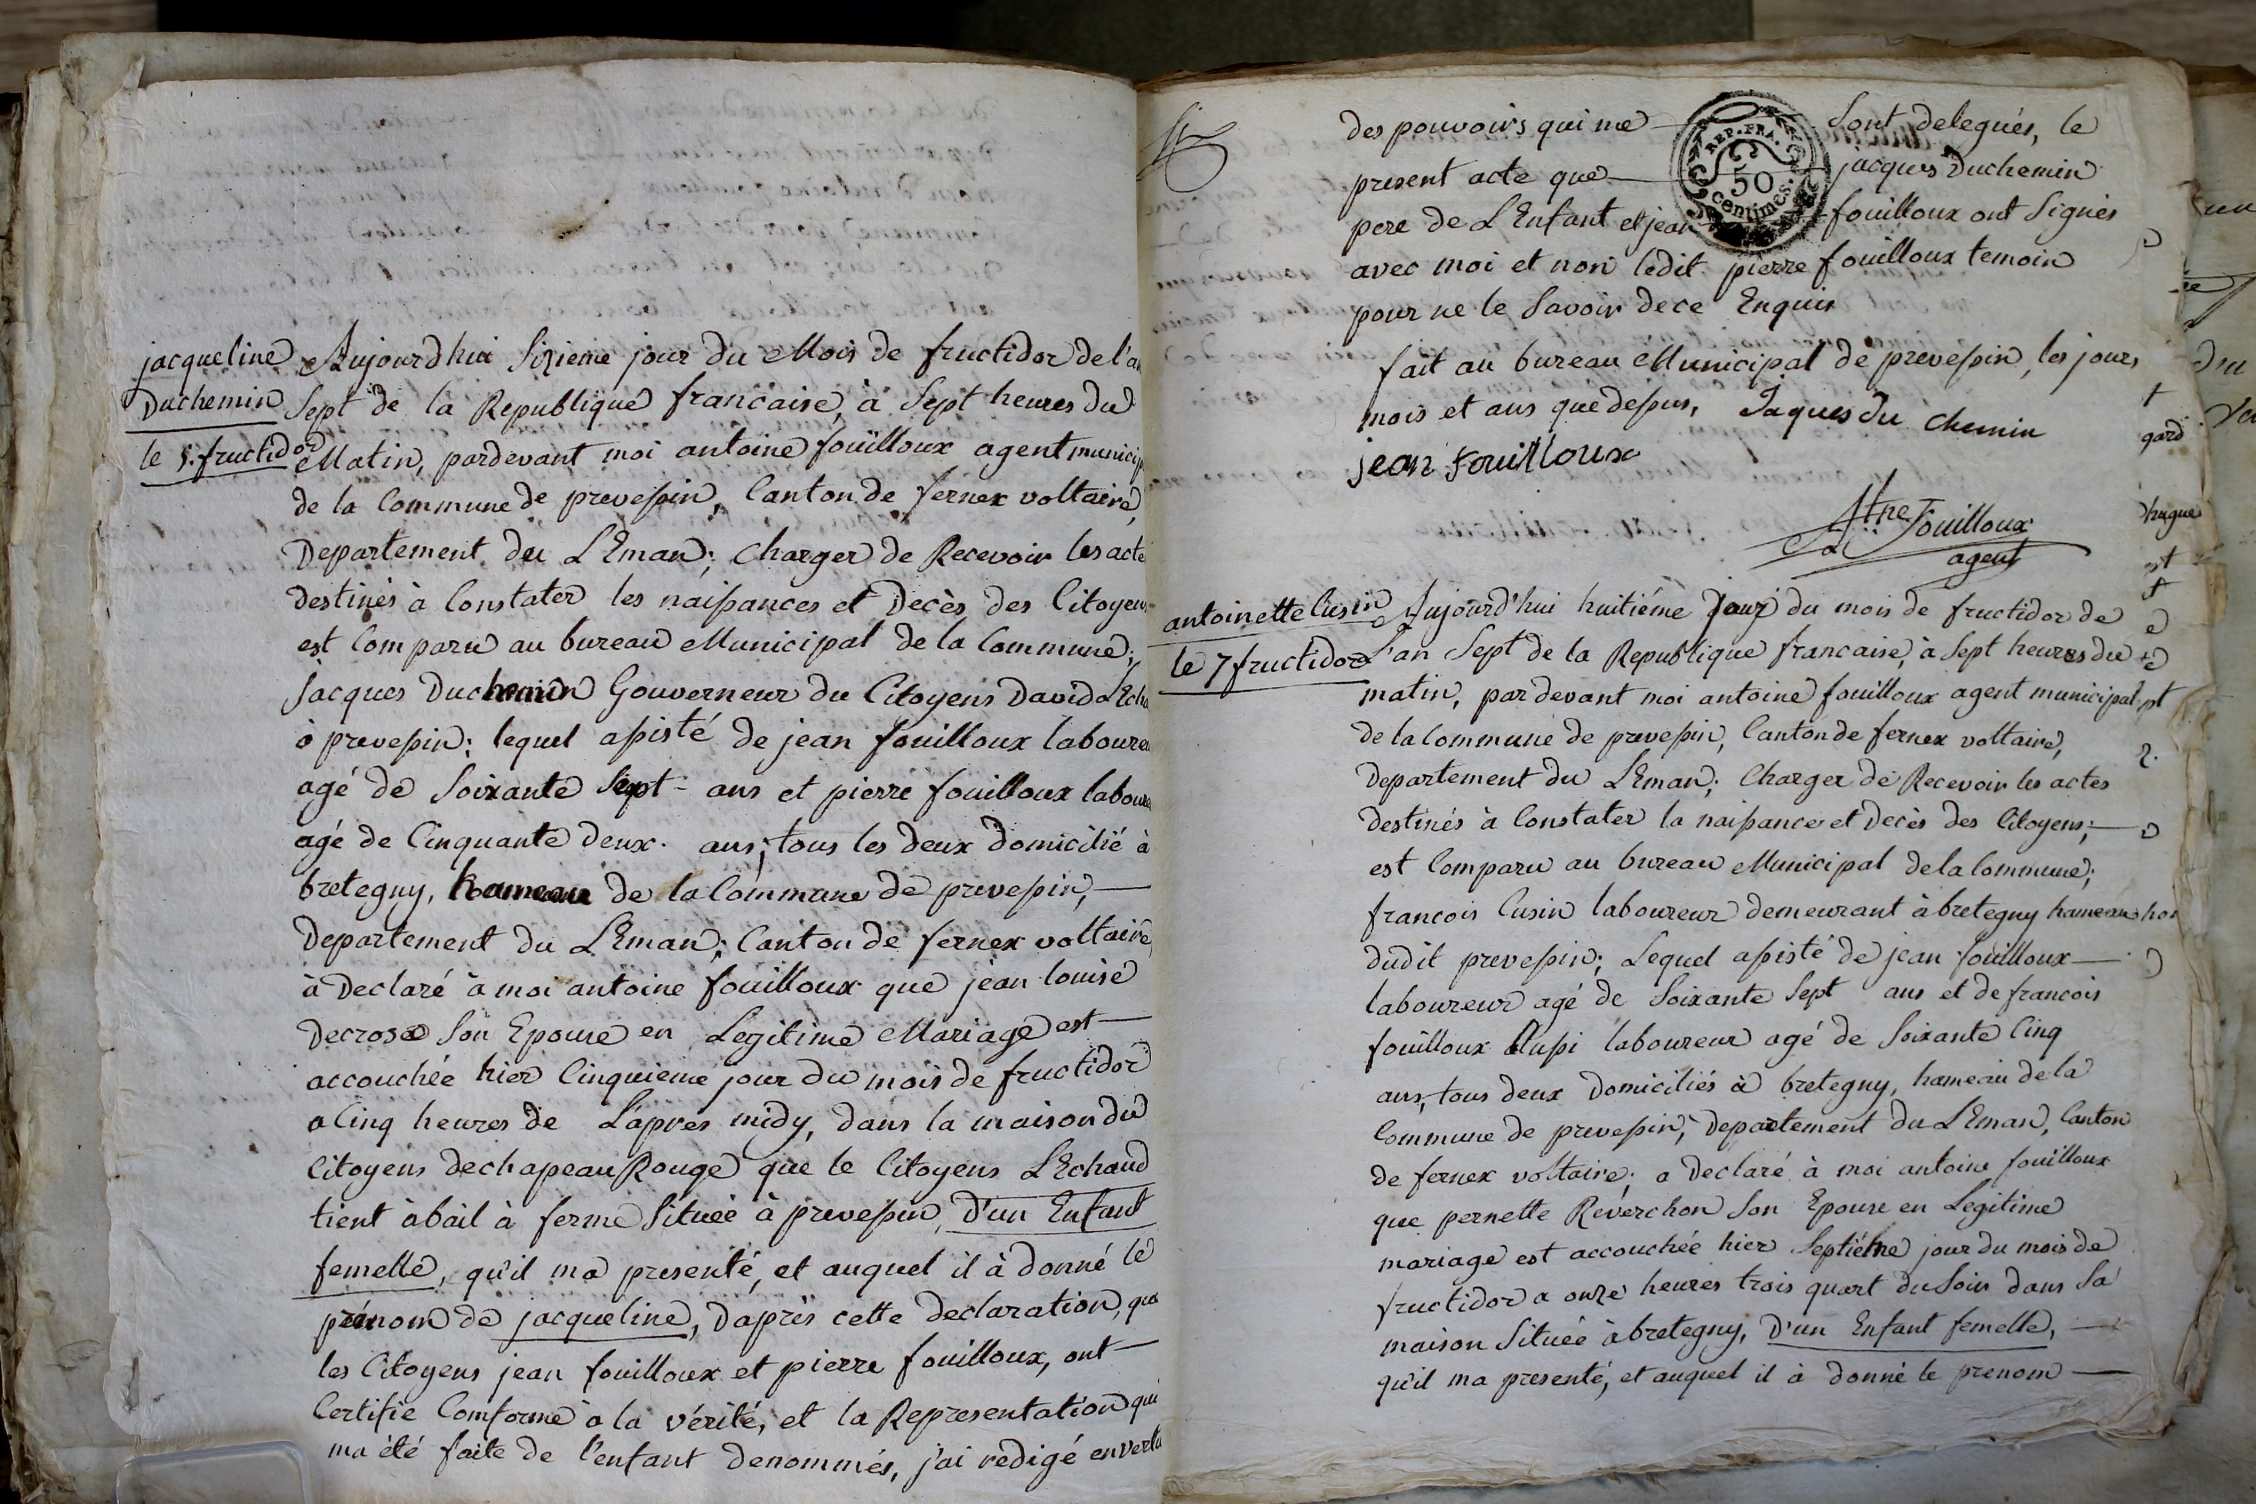 jacqueline
Duchemin
le 5. fructidor
Aujourdhui Sixieme jour du Mois de fructidor de l'an
Sept de la Republique francaise, à Sept heures du
Matin, pardevant moi antoine fouilloux agent municip
de la Commune de prevessin, Canton de fernex voltaire,
Departement du LEman; Charger de Recevoir les acte
destinés à Constater les naissances et Decès des Citoyens
est Comparu au bureau Municipal de la Commune;
jacques Duchemin Gouverneur du Citoyens David LEcha
à prevessin; lequel assisté de jean fouilloux laboureu
agé de Soixante Sept - ans et pierre fouilloux laboure
agé de Cinquante deux. ans; tous les deux domicilié à
bretegny, hameau de la Commune de prevessin,
Departement du LEman; Canton de fernex voltaire,
à Declaré à moi antoine fouilloux que jean louise
Decrose Son Epouse en Legitime Mariage est
accouchée hier Cinquieme jour du mois de fructidor
a Cinq heures de L'apres midy, dans la maison du
Citoyens dechapeau Rouge que le Citoyens LEchaud
tient à bail à ferme Située à prevessin, D'un Enfant
femelle, qu'il ma presenté, et auquel il à donné le
prénom de jacqueline, D'après cette declaration, que
les Citoyens jean fouilloux et pierre fouilloux, ont
Certifie Comforme à la vérité, et la Representation qui
ma été faite de l'enfant denommés, j'ai redigé en vertu
des pouvoirs qui me Sont delegués, le
present acte que jacques Duchemin
pere de L'Enfant et jean fouilloux ont Signés
avec moi et non ledit pierre fouilloux temoin
pour ne le Savoir de ce Enquis
REP. FRA.
50
centimes.
fait au bureau Municipal de prevessin, les jours,
mois et ans que dessus, Jaques du Chemin
jean Fouilloux
Atne Fouilloux
agent
antoinette Cusin
le 7 fructidor
Aujourd'hui huitiéme Jour du mois de fructidor de
L'an Sept de la Republique francaise, à Sept heures du
matin, par devant moi antoine fouilloux agent municipal
de la Commune de prevessin, Canton de fernex voltaire,
Departement du LEman; Charger de Recevoir les actes
destinés à Constater la naissance et Decès des Citoyens;
est Comparu au bureau Municipal de la Commune;
francois Cusin laboureur demeurant à bretegny hameau
dudit prevessin; Lequel assisté de jean fouilloux
laboureur agé de Soixante Sept ans et de francois
fouilloux Aussi laboureur agé de Soixante Cinq
ans, tous deux domiciliés à bretegny, hameau de la
Commune de prevessin, Departement du LEman, Canton
de fernex voltaire; a Declaré à moi antoine fouilloux
que pernette Reverchon Son Epouse en Legitime
mariage est accouchée hier Septiéme jour du mois de
fructidor a onze heures trois quart du Soir dans Sa
maison Située à bretegny, D'un Enfant femelle,
qu'il ma presenté, et auquel il à donné le prenom